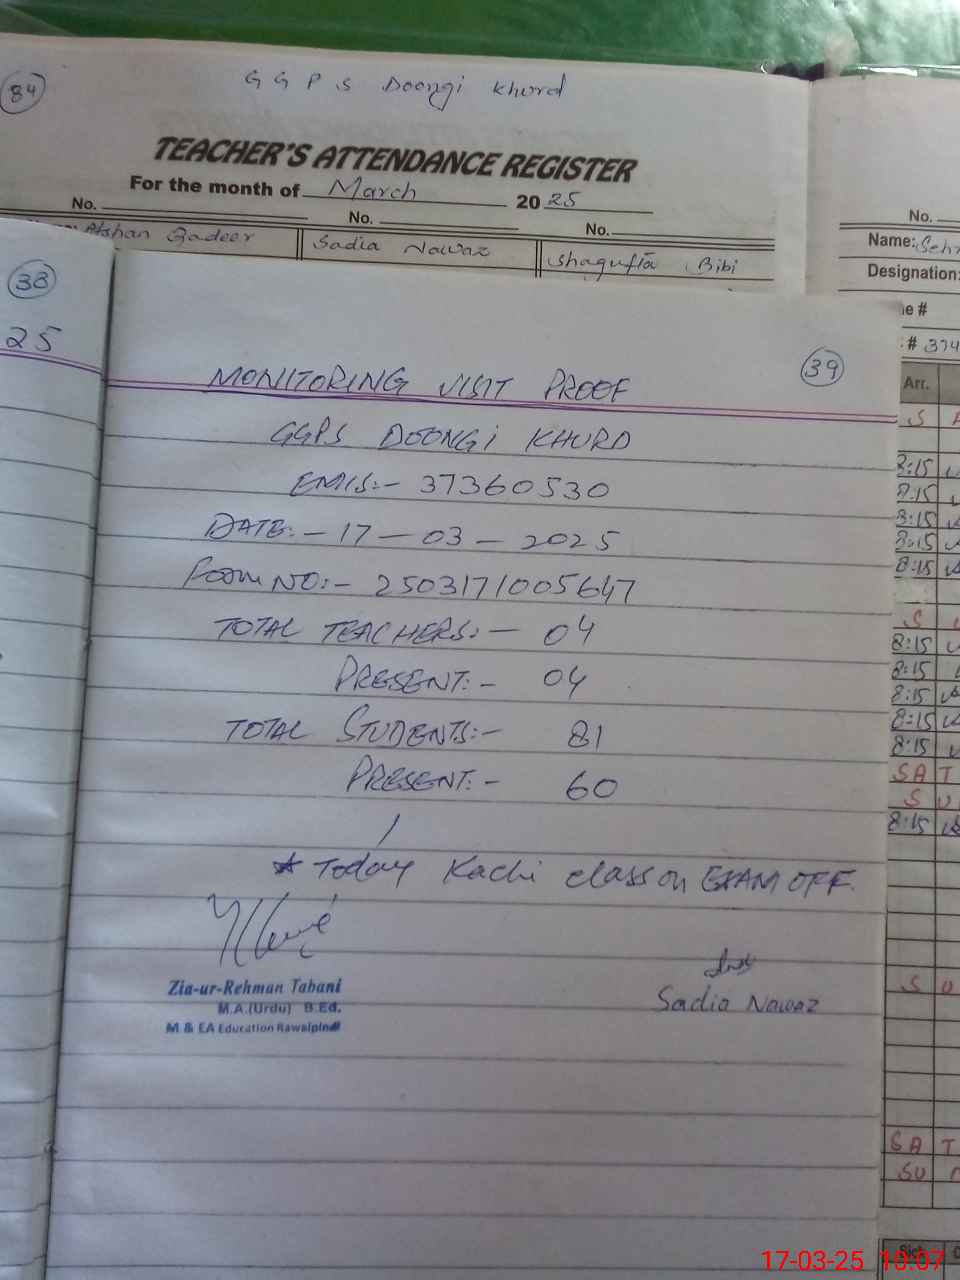 84
G G P S Doongi Khurd
TEACHER'S ATTENDANCE REGISTER
For the month of March 2025
No. No. No.
Afshan Qadeer Sadia Nawaz Shagufta Bibi
No.
Name:
Designation:
# 374
Arr.
S
8:15
8:15
8:15
8:15
8:15
S
8:15
8:15
8:15
8:15
8:15
SA T
S U
8:15
S U
SA T
SU
38
25
39
MONITORING VISIT PROOF
GGPS DOONGI KHURD
EMIS:- 37360530
DATE:- 17-03-2025
Foom NO:- 2503171005647
TOTAL TEACHERS:- 04
PRESENT:- 04
TOTAL STUDENTS:- 81
PRESENT:- 60
* Today Kachi class on EXAM OFF.
Zia-ur-Rehman Tabani
M.A.(Urdu) B.Ed.
M & EA Education Rawalpindi
Sadia Nawaz
17-03-25 10:07